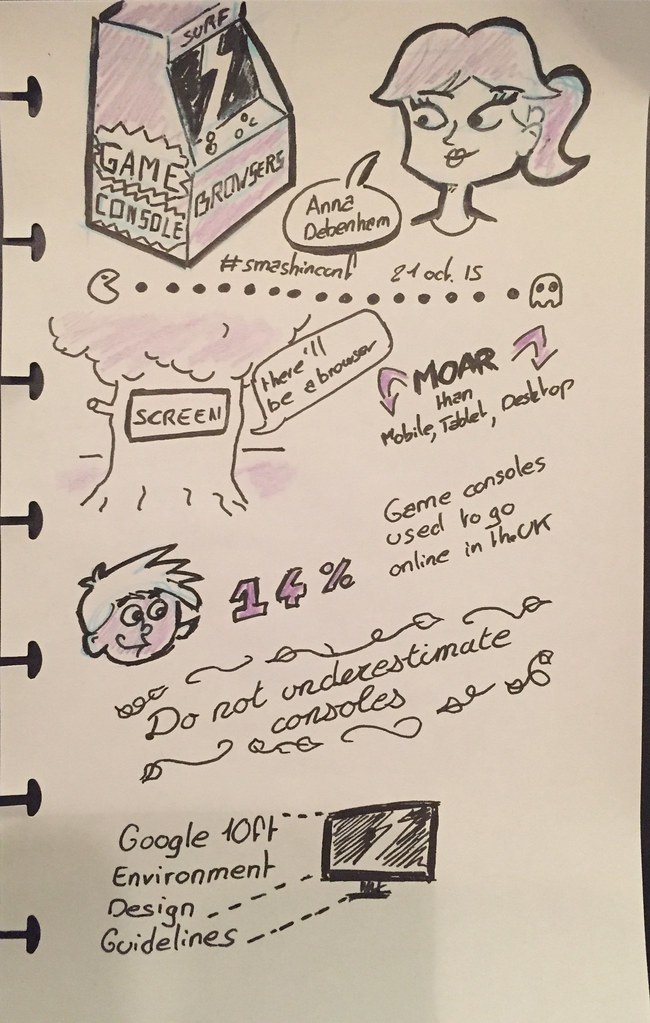 SURF
GAME
CONSOLE
BROWSERS
Anna
Debenham
#smashinconf
21 oct. 15
there'll
be a browser
SCREEN
MOAR
than
Mobile, Tablet, Desktop
Game consoles
used to go
online in the UK
14%
Do not underestimate
consoles
Google 10ft
Environment
Design
Guidelines